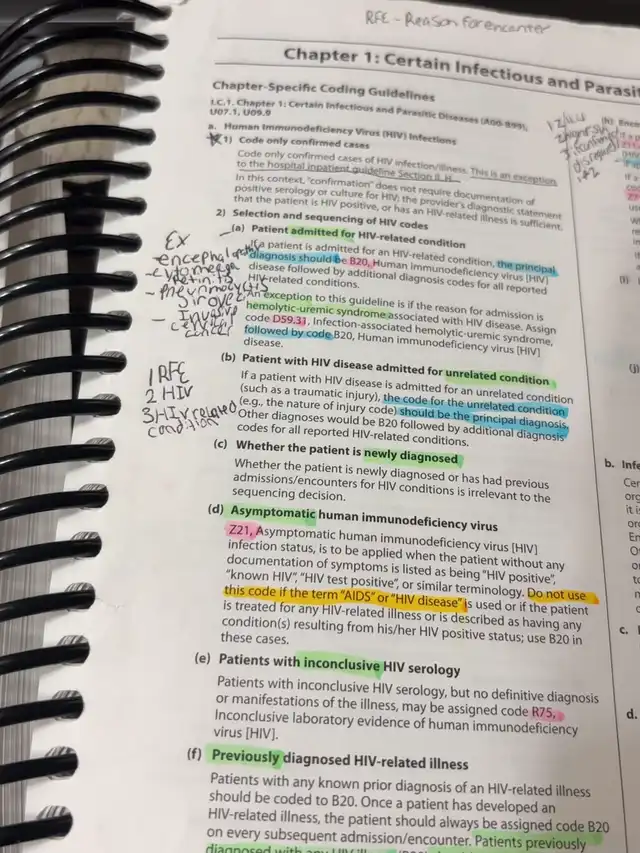 RFE - Reason for encounter
Chapter 1: Certain Infectious and Parasit
Chapter-Specific Coding Guidelines
I.C.1. Chapter 1: Certain Infectious and Parasitic Diseases (A00-B99),
U07.1, U09.9
a. Human Immunodeficiency Virus (HIV) Infections
1) Code only confirmed cases
Code only confirmed cases of HIV infection/illness. This is an exception
to the hospital inpatient guideline Section II, H.
In this context, "confirmation" does not require documentation of
positive serology or culture for HIV; the provider's diagnostic statement
that the patient is HIV positive, or has an HIV-related illness is sufficient.
2) Selection and sequencing of HIV codes
(a) Patient admitted for HIV-related condition
If a patient is admitted for an HIV-related condition, the principal
diagnosis should be B20, Human immunodeficiency virus [HIV]
disease followed by additional diagnosis codes for all reported
HIV-related conditions.
An exception to this guideline is if the reason for admission is
hemolytic-uremic syndrome associated with HIV disease. Assign
code D59.31, Infection-associated hemolytic-uremic syndrome,
followed by code B20, Human immunodeficiency virus [HIV]
disease.
EX
- Invasive
cervical
cancer
(b) Patient with HIV disease admitted for unrelated condition
If a patient with HIV disease is admitted for an unrelated condition
(such as a traumatic injury), the code for the unrelated condition
(e.g., the nature of injury code) should be the principal diagnosis.
Other diagnoses would be B20 followed by additional diagnosis
codes for all reported HIV-related conditions.
1 RFE
2 HIV
3 HIV related
condition
(c) Whether the patient is newly diagnosed
Whether the patient is newly diagnosed or has had previous
admissions/encounters for HIV conditions is irrelevant to the
sequencing decision.
(d) Asymptomatic human immunodeficiency virus
Z21, Asymptomatic human immunodeficiency virus [HIV]
infection status, is to be applied when the patient without any
documentation of symptoms is listed as being "HIV positive",
"known HIV", "HIV test positive", or similar terminology. Do not use
this code if the term "AIDS" or "HIV disease" is used or if the patient
is treated for any HIV-related illness or is described as having any
condition(s) resulting from his/her HIV positive status; use B20 in
these cases.
(e) Patients with inconclusive HIV serology
Patients with inconclusive HIV serology, but no definitive diagnosis
or manifestations of the illness, may be assigned code R75,
Inconclusive laboratory evidence of human immunodeficiency
virus [HIV].
(f) Previously diagnosed HIV-related illness
Patients with any known prior diagnosis of an HIV-related illness
should be coded to B20. Once a patient has developed an
HIV-related illness, the patient should always be assigned code B20
on every subsequent admission/encounter. Patients previously
diagnosed with any HIV
(i)
(j)
b. Infe
Cer
org
it i
oro
En
c.
d.